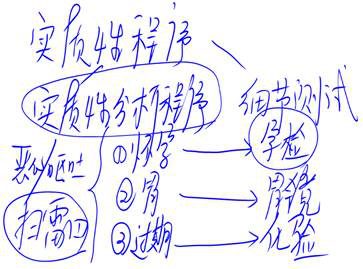 实质性程序
实质性分析程序 细节测试
恶心呕吐 ①怀孕 → 孕检
扫雷 ②胃 → 胃镜
③过期 → 化验